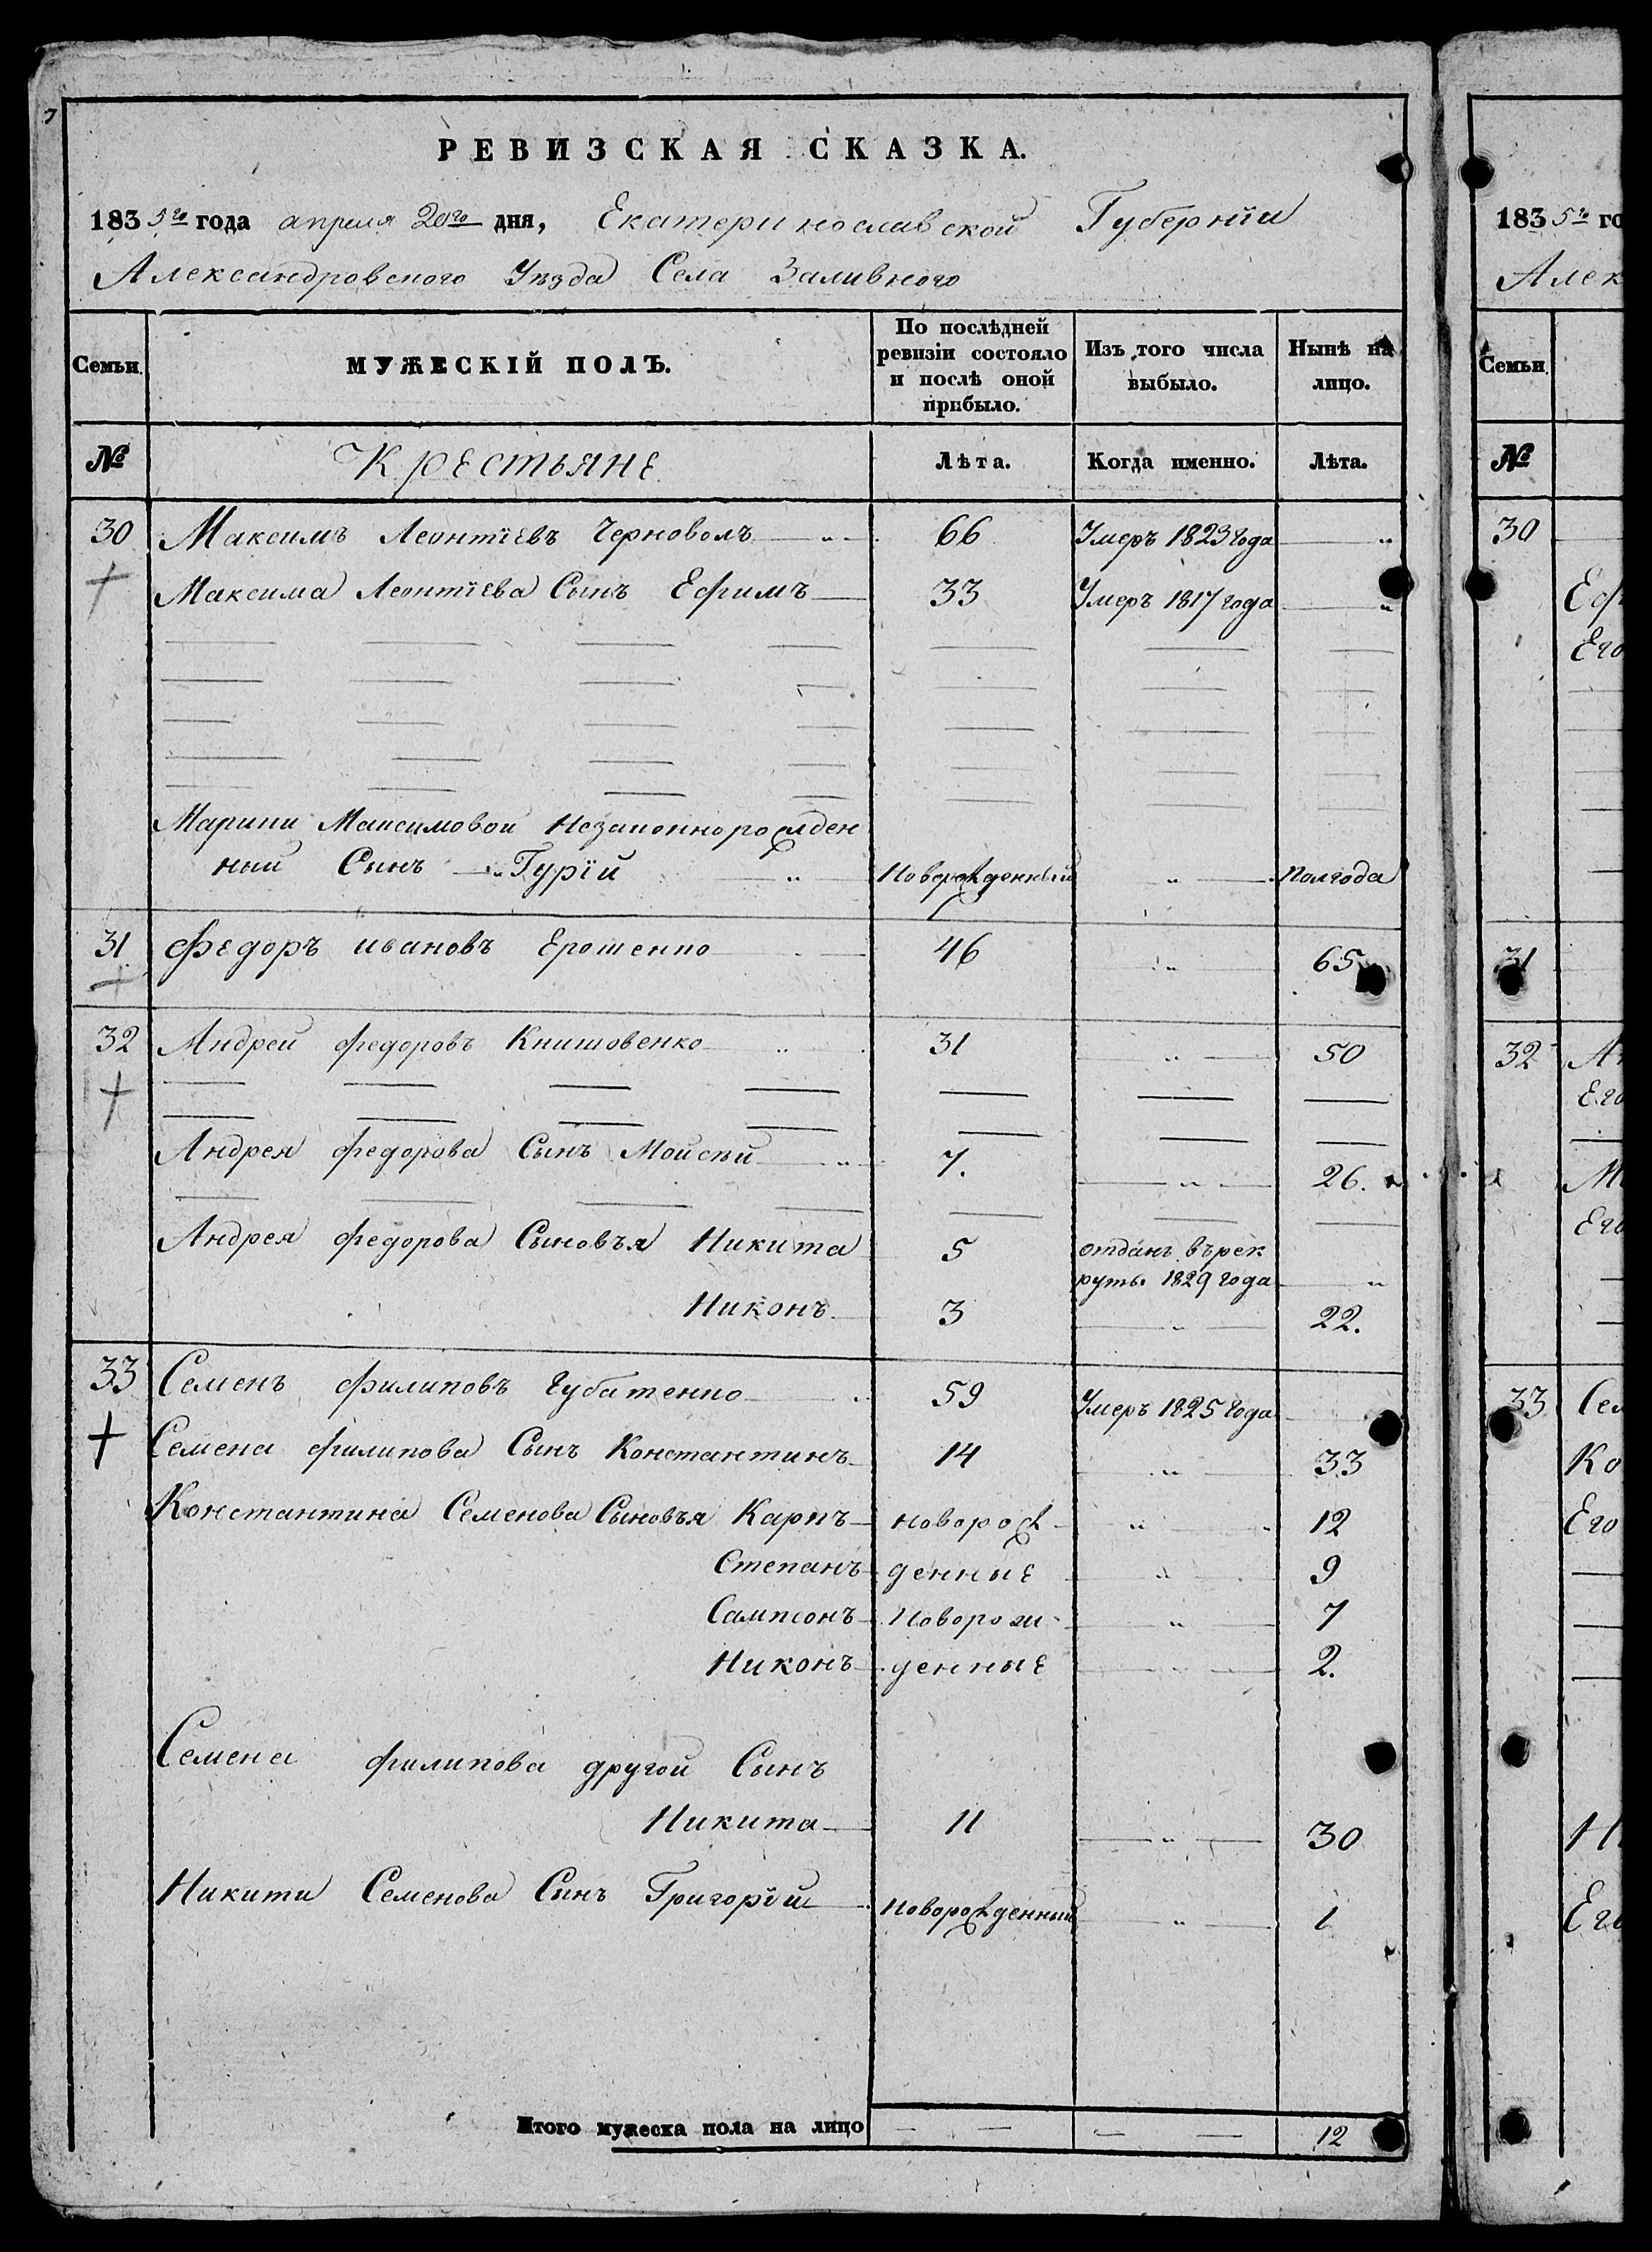 7
РЕВИЗСКАЯ СКАЗКА.
1835го года апреля 20го дня, Екатеринославской Губерніи
Александровского Уѣзда Села Заливного
Семьи.
МУЖЕСКІЙ ПОЛЪ.
По послѣдней
ревизіи состояло
и послѣ оной
прибыло.
Изъ того числа
выбыло.
Нынѣ на
лицо.
№ Крестьяне Лѣта. Когда именно. Лѣта.
30 Максимъ Леонтіевъ Черноволъ 66 Умеръ 1823 года
Максима Леонтіева Сынъ Ефимъ 33 Умеръ 1817 года
Марини Максимовой Незаконнорожден
ный Сынъ Гурій Новорожденный Полгода
31 Федоръ ивановъ Ерошенко 46 65
32 Андрей федоровъ Книшовенко 31 50
Андрея федорова Сынъ Мойсей 7. 26.
Андрея федорова Сыновъя Никита 5 отданъ върек
рутъ. 1829 года
Никонъ 3 22.
33 Семенъ филиповъ Губатенко 59 Умеръ 1825 года
Семена филипова Сынъ Константинъ 14 33
Константина Семенова Сыновъя Карпъ новорож 12
Степанъ денные 9
Сампсонъ Новорож 7
Никонъ денные 2.
Семена филипова другой Сынъ
Никита 11 30
Никити Семенова Синъ Григорій Новорожденный 1
Итого мужеска пола на лицо 12
1835го го
Алек
Семьи.
№
30
Еф
Его
31
32 Ан
Его
М
Его
33 Сем
Ко
Его
Н
Его